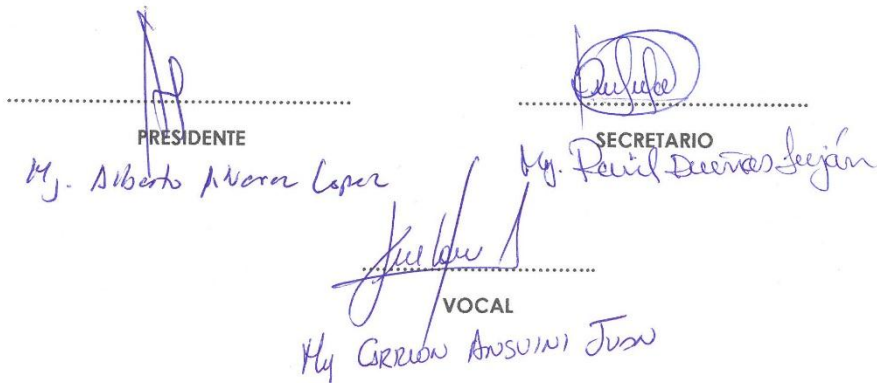 PRESIDENTE
Mg. Alberto Alvarez Lopez
SECRETARIO
Mg. Raúl Dueñas Luján
VOCAL
Mg CARRION ANGUINI JUAN